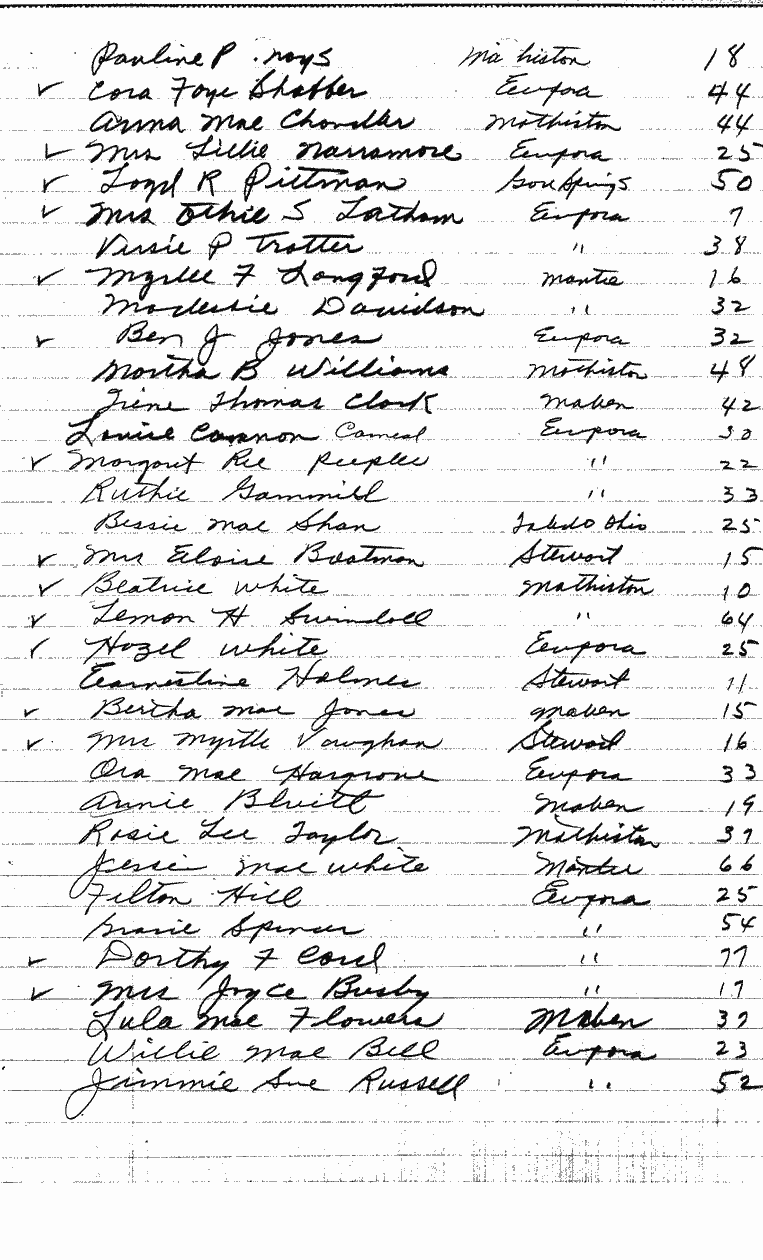 Pauline P . noys Ma histon 18
✓ Cora Foye Shaffer Eupora 44
Anna Mae Chandler Mathiston 44
✓ Mrs Lillie Narramore Eupora 25
✓ Loyd R Pittman Gore Springs 50
✓ Mrs Othie S Latham Eupora 7
Versie P Trotter " 38
✓ Myrlee F Langford Mantee 16
Modessie Davidson " 32
✓ Ben J Jones Eupora 32
Martha B Williams Mathiston 48
Irene Thomas Clark Maben 42
Louise Cannon Eupora 30
✓ Margaret Rie Peeples " 22
Ruthie Gammill " 33
Bessie Mae Shan Toledo Ohio 25
✓ Mrs Eloise Boatman Stewart 15
✓ Beatrice White Mathiston 10
✓ Lemon H Swindoll " 64
✓ Hazel White Eupora 25
Earnestine Holmes Stewart 11
✓ Bertha Mae Jones Maben 15
✓ Mrs Myrtle Vaughan Stewart 16
Ora Mae Hargrove Eupora 33
Annie Bluitt Maben 19
Rosie Lee Taylor Mathiston 39
Jessie Mae White Mantee 66
Filton Hill Eupora 25
Spencer " 54
✓ Dorthy F Cord " 77
✓ Mrs Joyce Busby " 17
Lula Mae Flowers Maben 37
Willie Mae Bell Eupora 23
Jimmie Sue Russell " 52